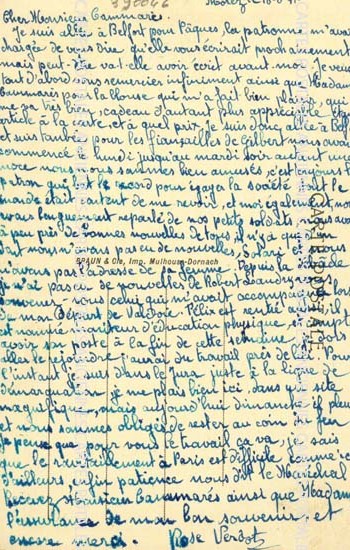 Morez le
Cher Monsieur Cammarès.
Je suis allée à Belfort pour Pâques, la patronne m'avait
chargée de vous dire qu'elle vous écrirait prochainement
mais peut-être va-t-elle avoir écrit avant moi. Je veux
tout d'abord vous remercier infiniment ainsi que Madame
Cammarès pour la blouse qui m'a fait bien plaisir, qui
me va très bien, cadeau d'autant plus appréciable
article à la carte, et à quel prix. Je suis donc allée à Bel
et suis tombée pour les fiançailles de Gilbert nous avons
commencé le lundi jusqu'au mardi soir autant une
noce nous nous sommes bien amusés, c'est toujours le
patron qui bat le record pour égayer la société tout le
monde était content de me revoir, et moi également nous
avons longuement reparlé de nos petits soldats, nous avons
à peu près de bonnes nouvelles de tous, il n'y a que
dont nous n'avons pas eu de nouvelles,
BRAUN & Cie, Imp. Mulhouse-Dornach
CARTE POSTALE
n'avons pas l'adresse de sa femme. Depuis la
je n'ai pas eu de nouvelles de Robert
souvenez-vous celui qui m'avait accompagnée lors
de mon départ de Valdoie. Félix est rentré il
est nommé moniteur d'éducation physique, compte
avoir son poste à la fin de cette semaine. Je dois
aller le rejoindre j'aurai du travail près de lui. Pour
l'instant je suis dans le Jura juste à la ligne de
démarquation, je me plais bien ici dans un site
magnifique, mais aujourd'hui dimanche il pleut
et nous sommes obligés de rester au coin du feu
Je pense que pour vous le travail ça va, je sais
que le ravitaillement à Paris est difficile comme ici
d'ailleurs, enfin patience nous dit le Maréchal
Recevez Monsieur Cammarès ainsi que Madame
l'assurance de mon bon souvenir et
encore merci. Rose Verdot